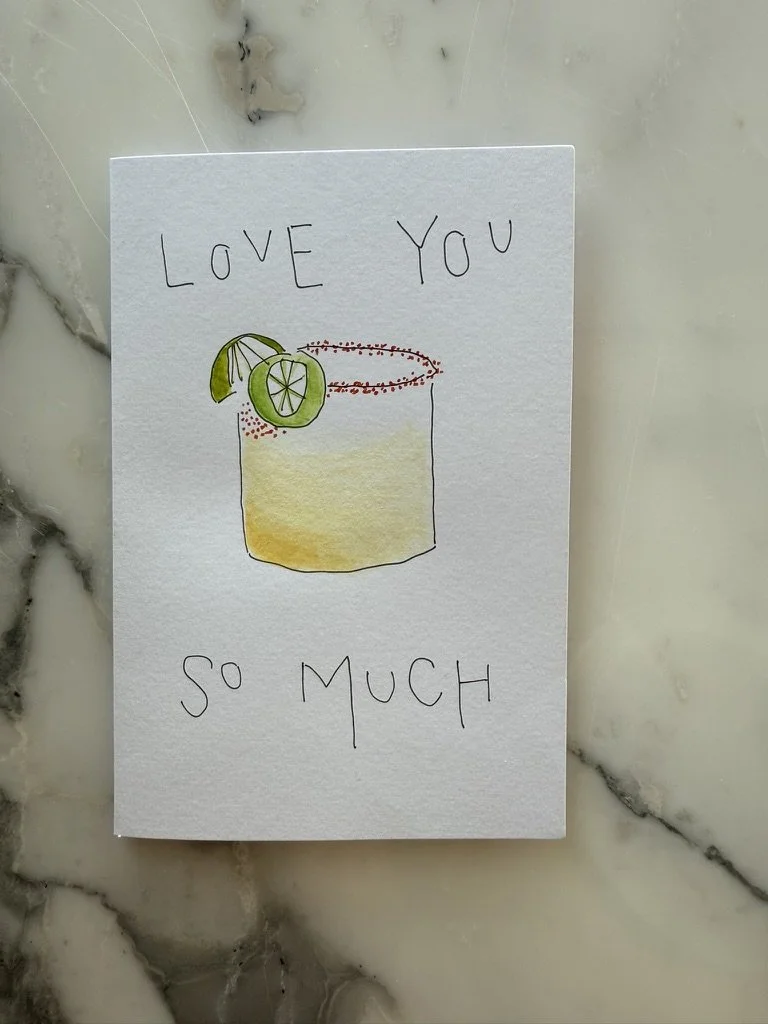 LOVE YOU
SO MUCH